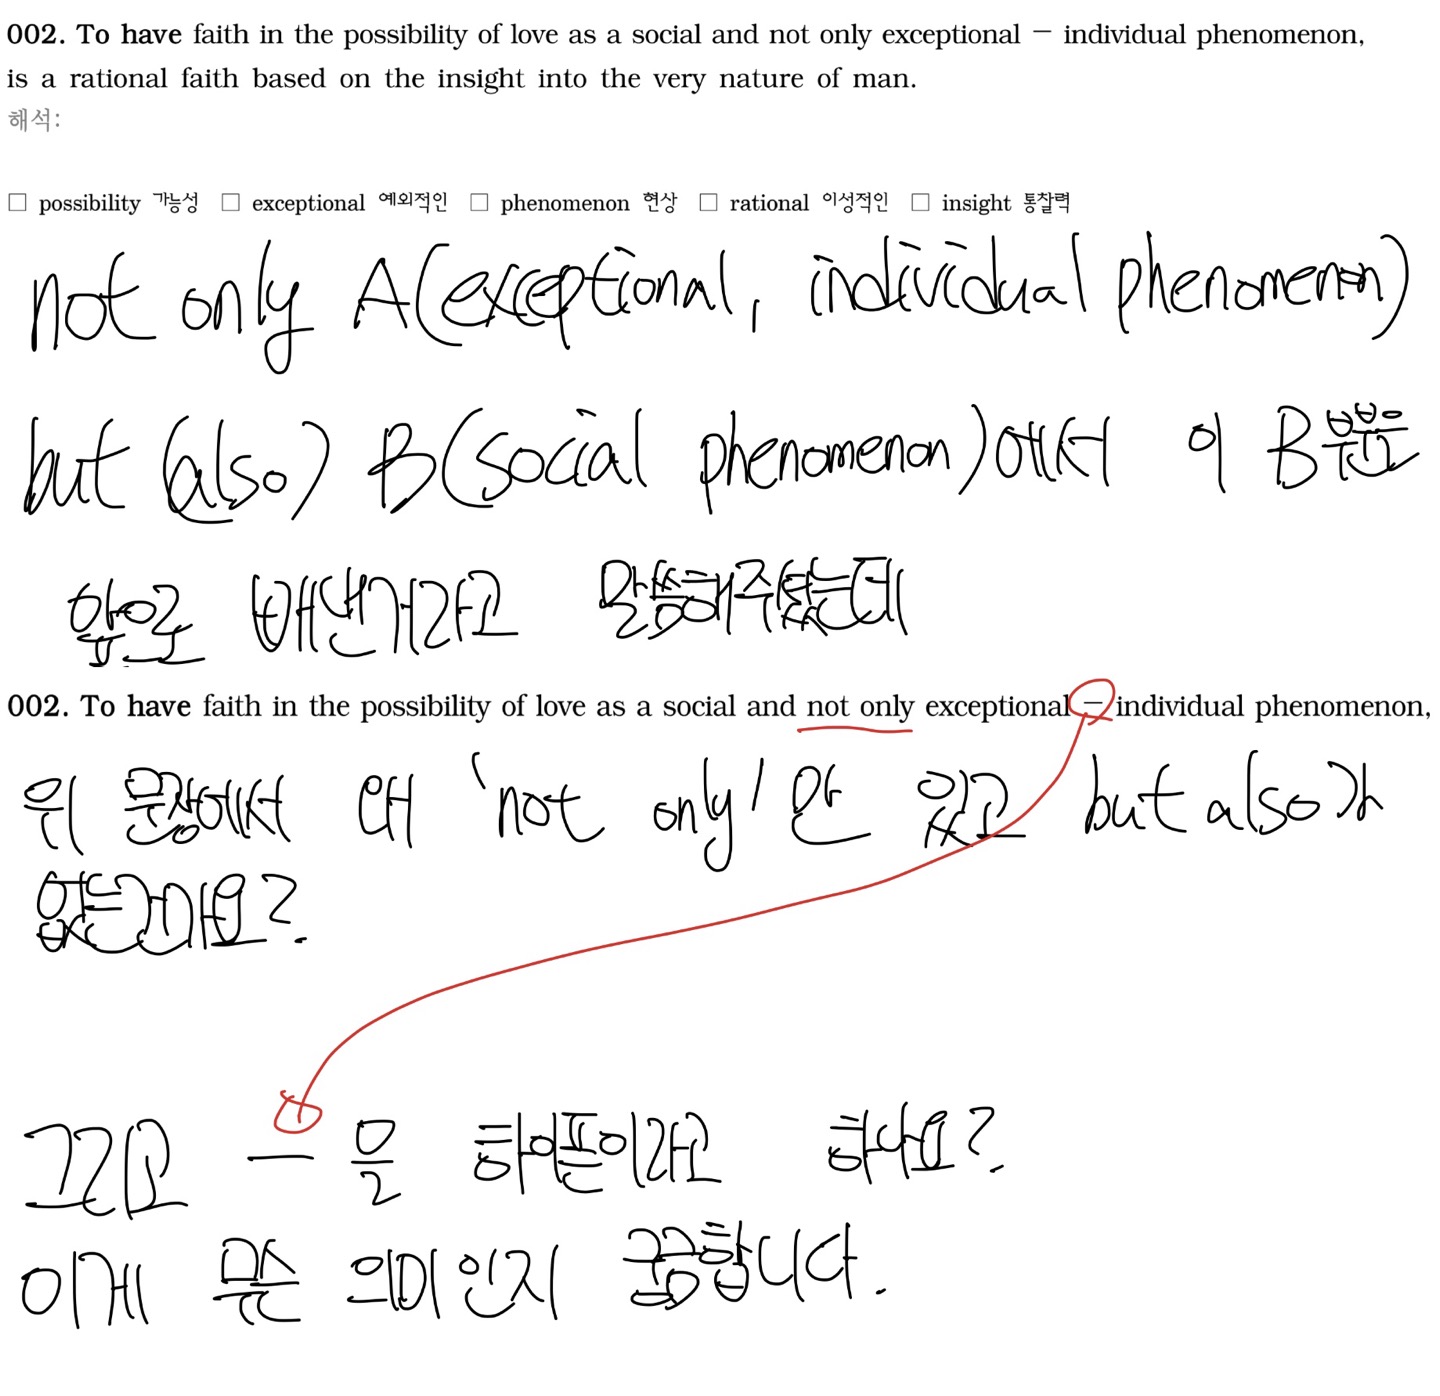 002. To have faith in the possibility of love as a social and not only exceptional − individual phenomenon,
is a rational faith based on the insight into the very nature of man.
해석:
□ possibility 가능성 □ exceptional 예외적인 □ phenomenon 현상 □ rational 이성적인 □ insight 통찰력
not only A(exceptional, individual phenomenon)
but (also) B(social phenomenon)에서 이 B부분
앞으로 빼낸거라고 말씀해주셨는데
002. To have faith in the possibility of love as a social and not only exceptional − individual phenomenon,
위 문장에서 왜 'not only'만 있고 but also가
없는건가요?
그리고 − 을 하이픈이라고 하나요?
이게 무슨 의미인지 궁금합니다.